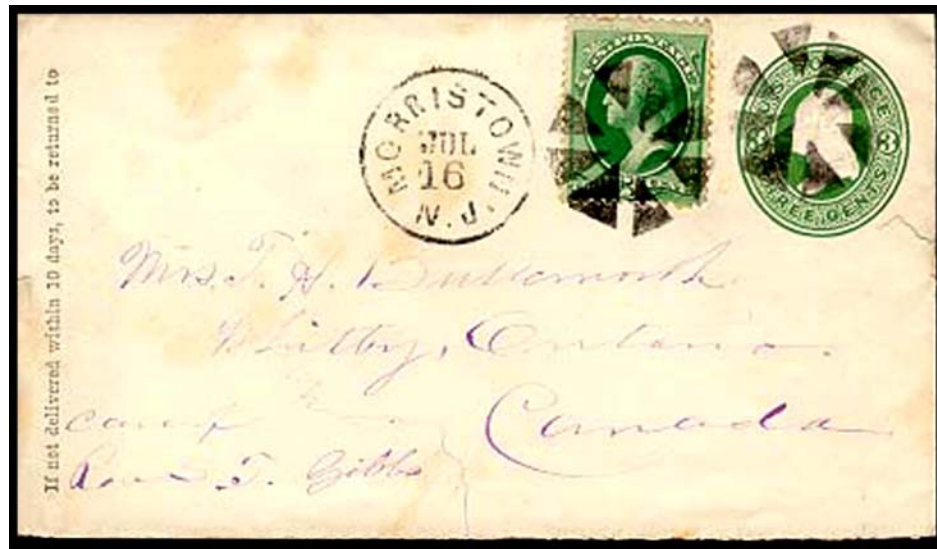 If not delivered within 10 days, to be returned to
MORRISTOWN,
JUL
16
N.J.
U.S. POSTAGE
U.S. POSTAGE
3
THREE CENTS
Mrs. T. H. Butterworth
Whitby, Ontario.
Canada
care of
Rev. S. T. Gibbs